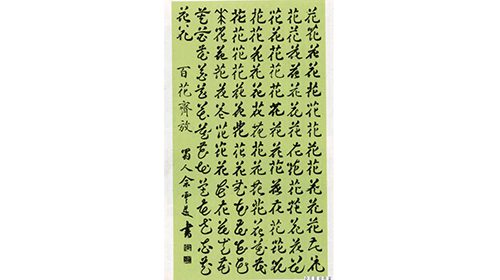 花花花花花花花花花花花花花花
花花花花花花花花花花花花花花
花花花花花花花花花花花花花花
花花花花花花花花花花花花花花
花花花花花花花花花花花花花花
花花花花花花花花花花花花花花
花花花花花花花花花花花花花花
花花
百花齊放
蜀人余雲書